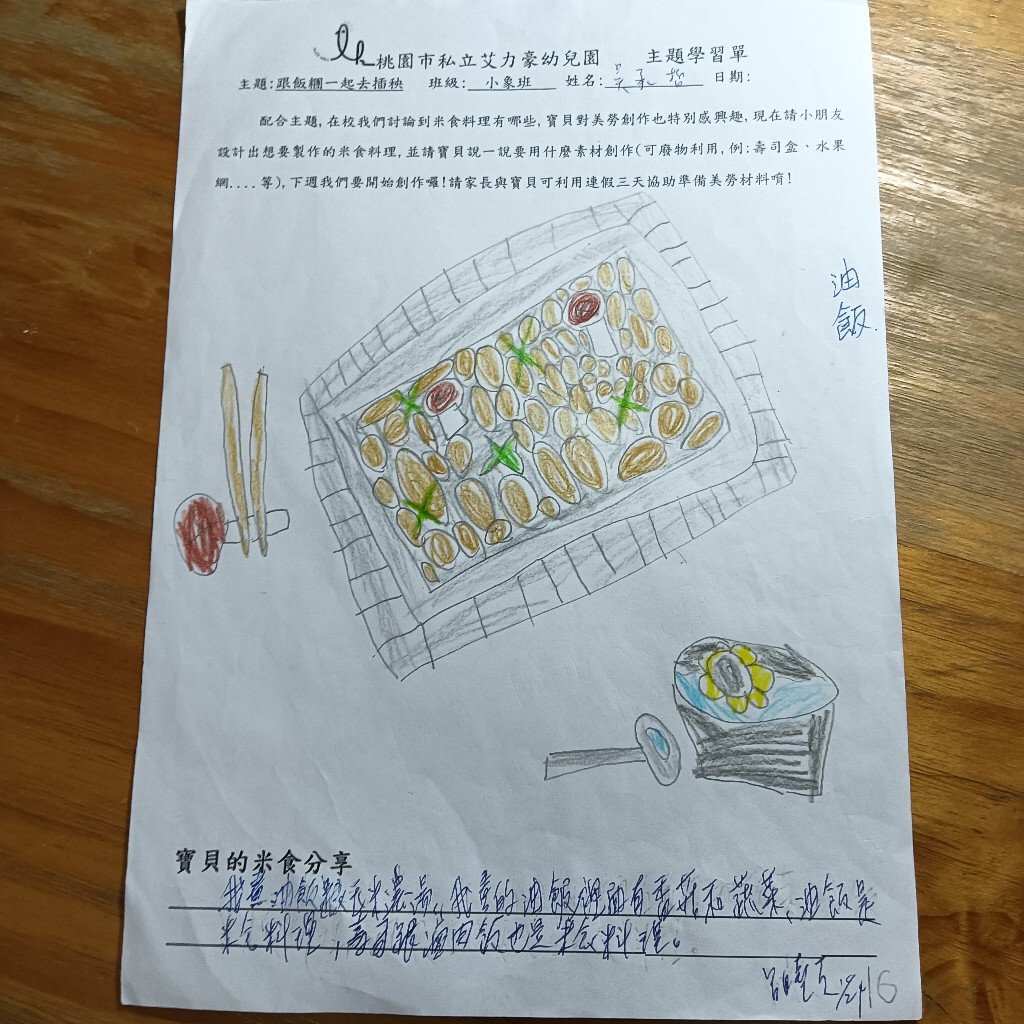 桃園市私立艾力豪幼兒園 主題學習單
主題:跟飯糰一起去插秧 班級: 小象班 姓名: 吴承哲 日期:
配合主題,在校我們討論到米食料理有哪些,寶貝對美勞創作也特別感興趣,現在請小朋友
設計出想要製作的米食料理,並請寶貝說一說要用什麼素材創作(可廢物利用,例:壽司盒、水果
網....等),下週我們要開始創作囉!請家長與寶貝可利用連假三天協助準備美勞材料唷!
油
飯
寶貝的米食分享
我畫油飯跟玉米濃湯,我畫的油飯裡面有香菇和蔬菜、油飯是
米食料理,壽司跟滷肉飯也是米食料理。